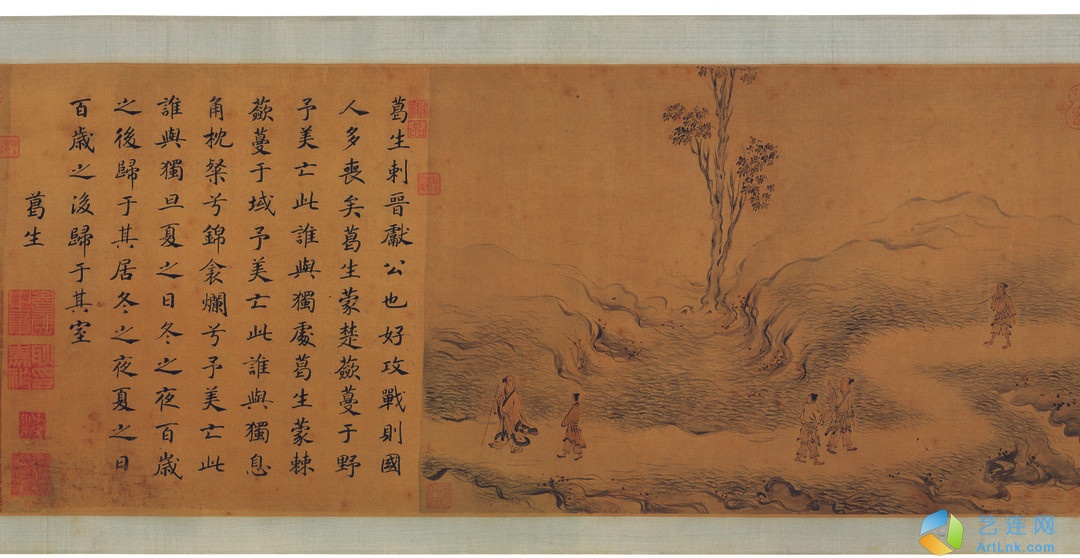 葛生刺晉獻公也好攻戰則國
人多喪矣葛生蒙楚蘞蔓于野
予美亡此誰與獨處葛生蒙棘
蘞蔓于域予美亡此誰與獨息
角枕粲兮錦衾爛兮予美亡此
誰與獨旦夏之日冬之夜百歲
之後歸于其居冬之夜夏之日
百歲之後歸于其室
葛生
艺连网
ArtLnk.com